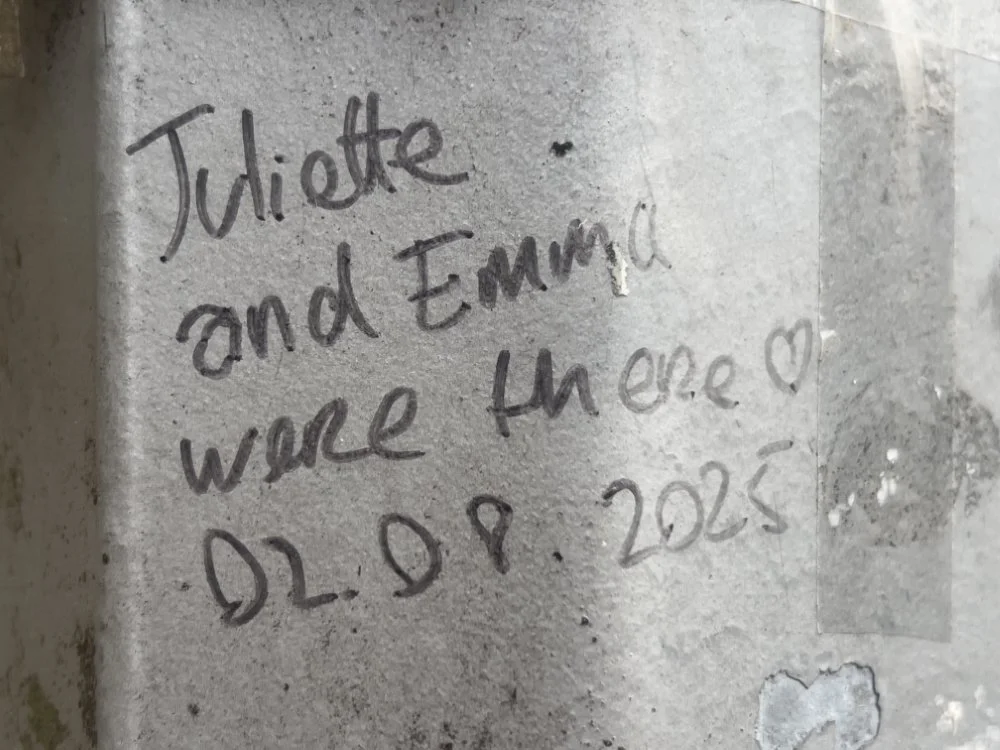 Juliette
and Emma
were there ♡
02.08.2025